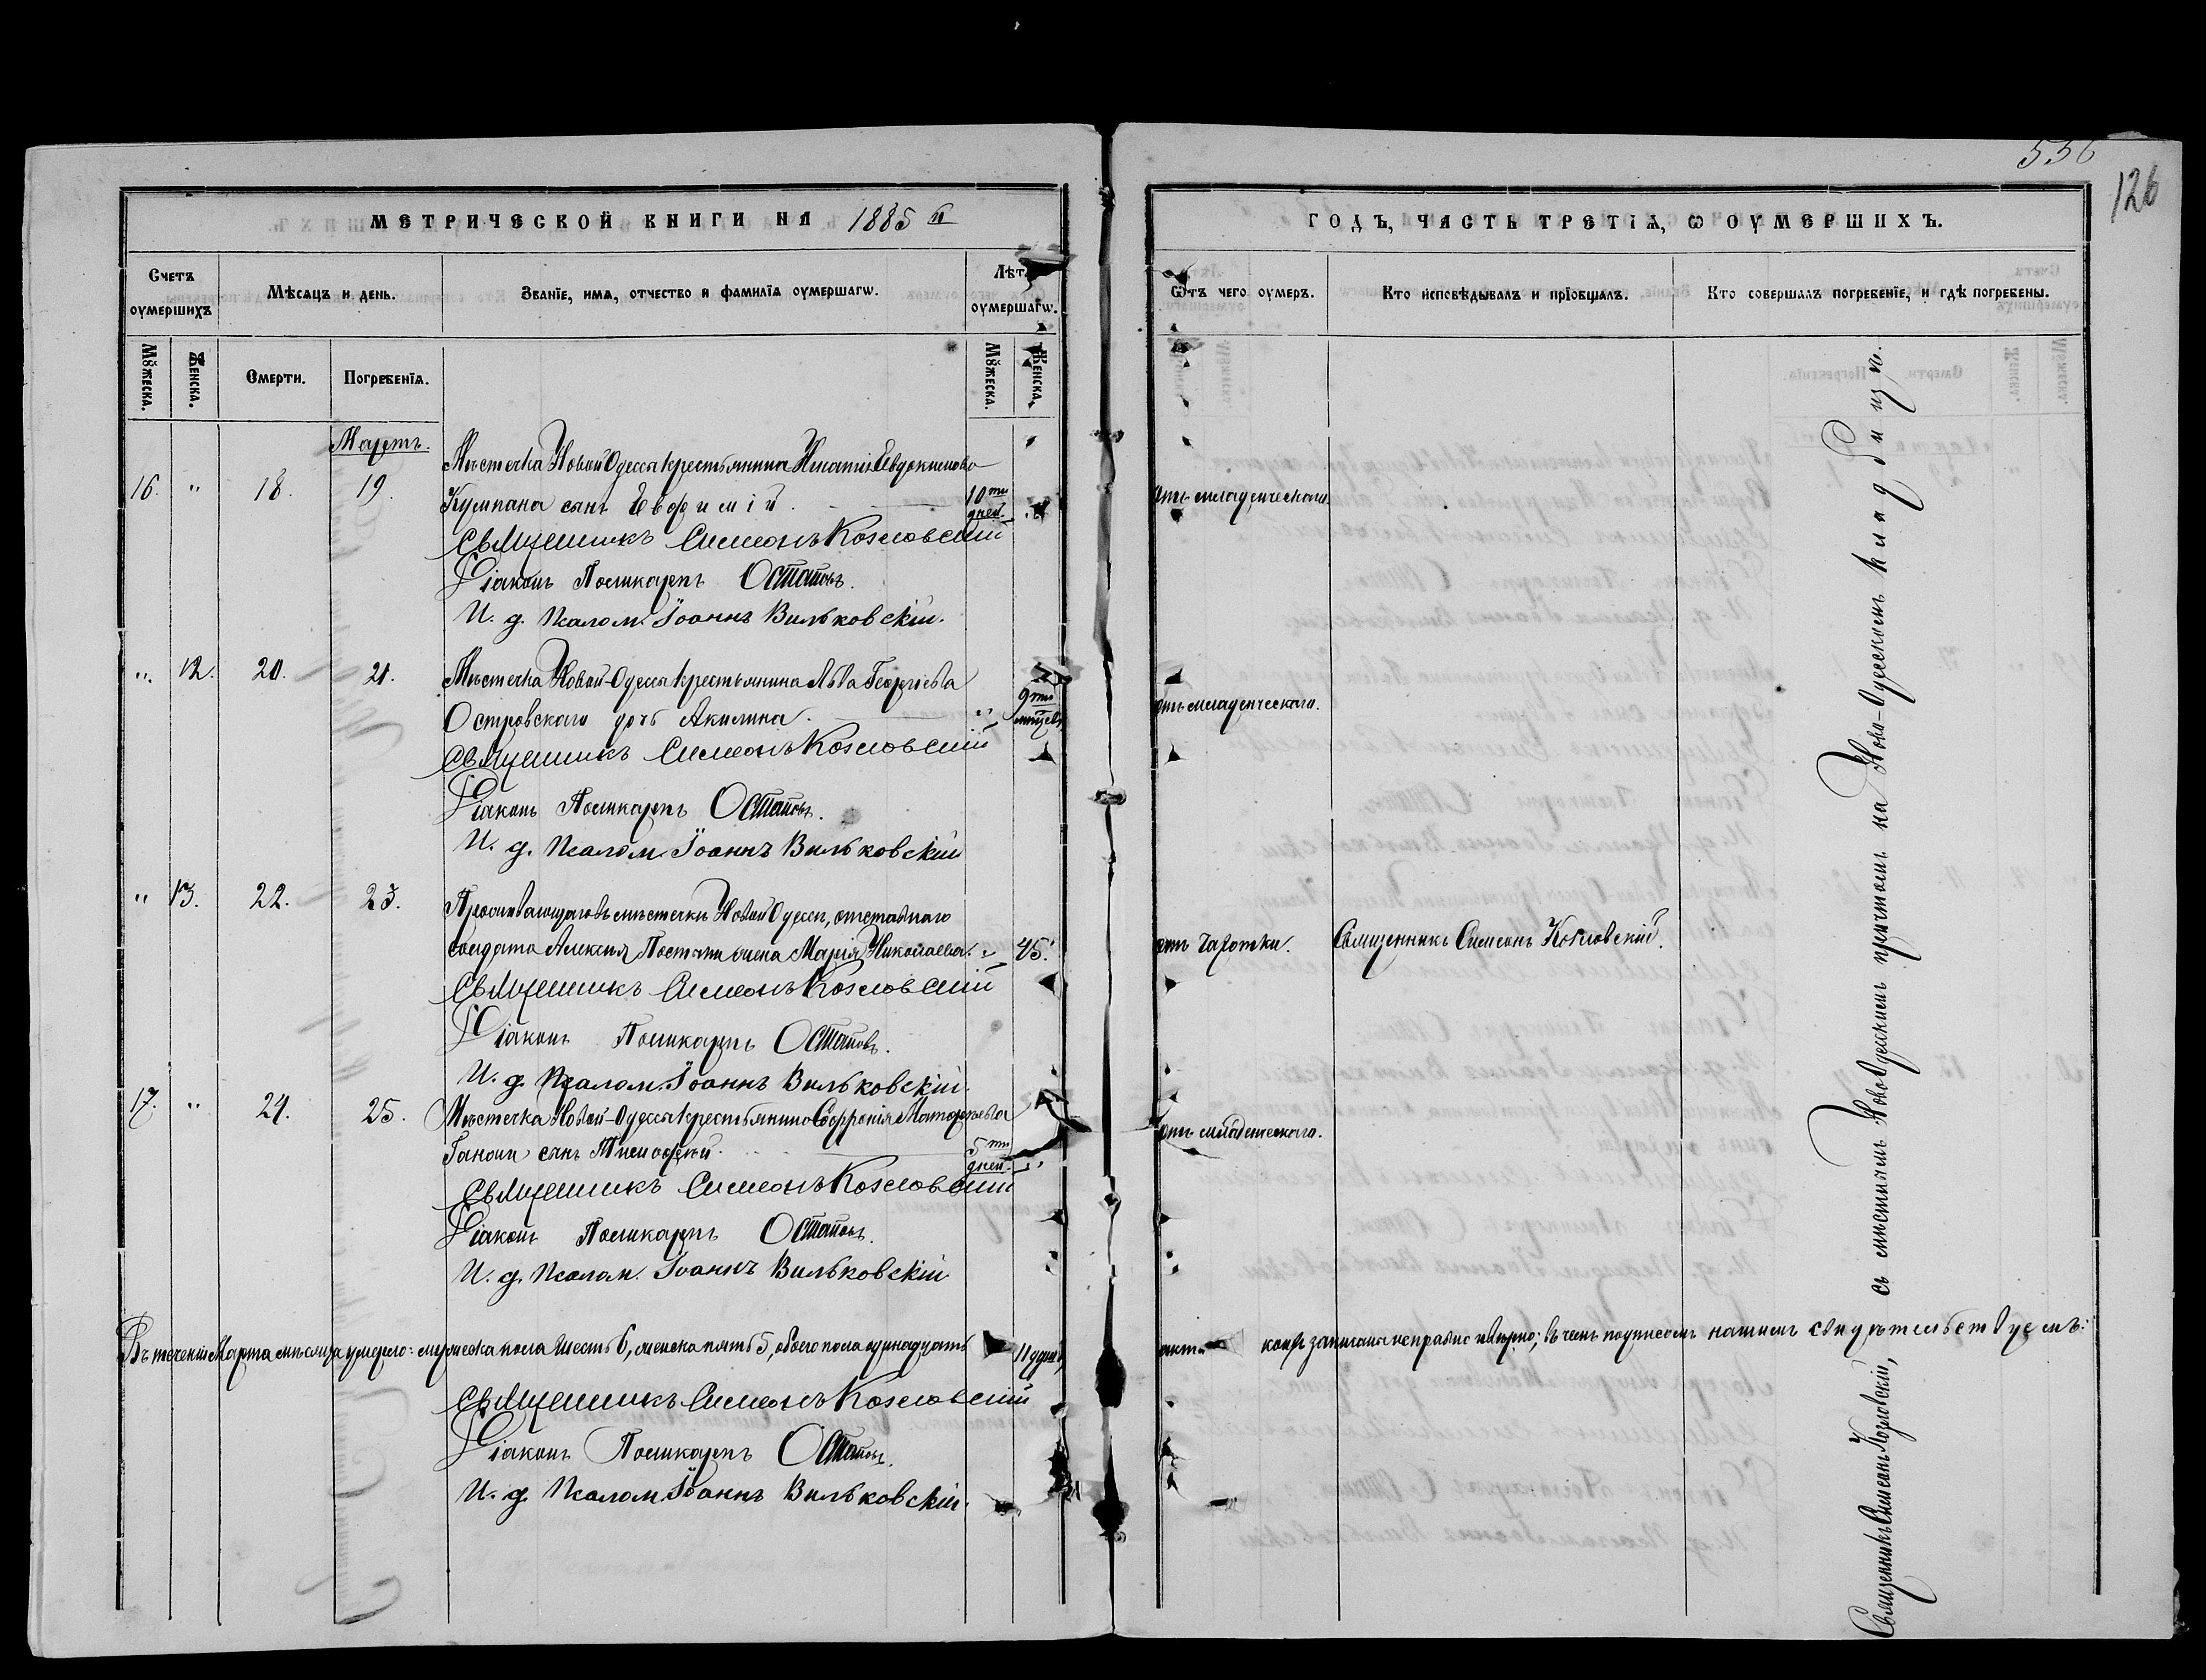 556
126
МЕТРИЧЕСКОЙ КНИГИ НА 1885 й
ГОДЪ, ЧАСТЬ ТРЕТІѦ, Ѡ ОУМЕРШИХЪ.
Счетъ оумершихъ
Мѣсѧцъ и день.
Званїе, имѧ, отчество и фамилїа оумершагѡ.
Лѣта оумершагѡ.
Ѿтъ чего оумеръ.
Кто исповѣдывалъ и прїобщалъ.
Кто совершалъ погребенїе, и гдѣ погребены.
Мꙋжеска.
Женска.
Смерти.
Погребенїѧ.
Мꙋжеска.
Женска.
Мартъ.
Мѣстечка Новой Одессы крестьянина Игнатія Евдокимова
16. " 18. 19. Кумпана сынъ Евфимій. 10ти дней. " отъ младенческаго
Священникъ Симеонъ Козловскій
Діаконъ Поликарпъ Остаповъ.
И. д. Псалом. Іоаннъ Вильковскій.
" 12. 20. 21. Мѣстечка Новой-Одессы крестьянина Льва Георгіева
Островскаго дочь Акилина. " 9ти мѣсяцевъ отъ младенческаго.
Священникъ Симеонъ Козловскій
Діаконъ Поликарпъ Остаповъ.
И. д. Псалом. Іоаннъ Вильковскій
" 13. 22. 23. Проживающаго въ мѣстечкѣ Новой Одессы, отставнаго
солдата Алексія жена Марія Николаева. " 45. отъ чахотки. Священникъ Симеонъ Козловскій.
Священникъ Симеонъ Козловскій
Діаконъ Поликарпъ Остаповъ.
И. д. Псалом. Іоаннъ Вильковскій.
17. " 24. 25. Мѣстечка Новой-Одессы крестьянина Софронія
сынъ Тимофей. 5ти дней. " отъ младенческаго.
Священникъ Симеонъ Козловскій
Діаконъ Поликарпъ Остаповъ.
И. д. Псалом. Іоаннъ Вильковскій
Въ теченіи Марта мѣсяца умерло: мужеска пола шесть 6, женска пять 5, обоего пола одинадцать 11 душъ, акты коихъ записаны исправно и вѣрно; въ чемъ подписомъ нашимъ свидѣтельствуемъ:
Священникъ Симеонъ Козловскій
Діаконъ Поликарпъ Остаповъ.
И. д. Псалом. Іоаннъ Вильковскій.
Священникъ Симеонъ Козловскій, съ мѣстнымъ Новоодесскимъ причтомъ на Ново-Одесскомъ кладбищѣ.